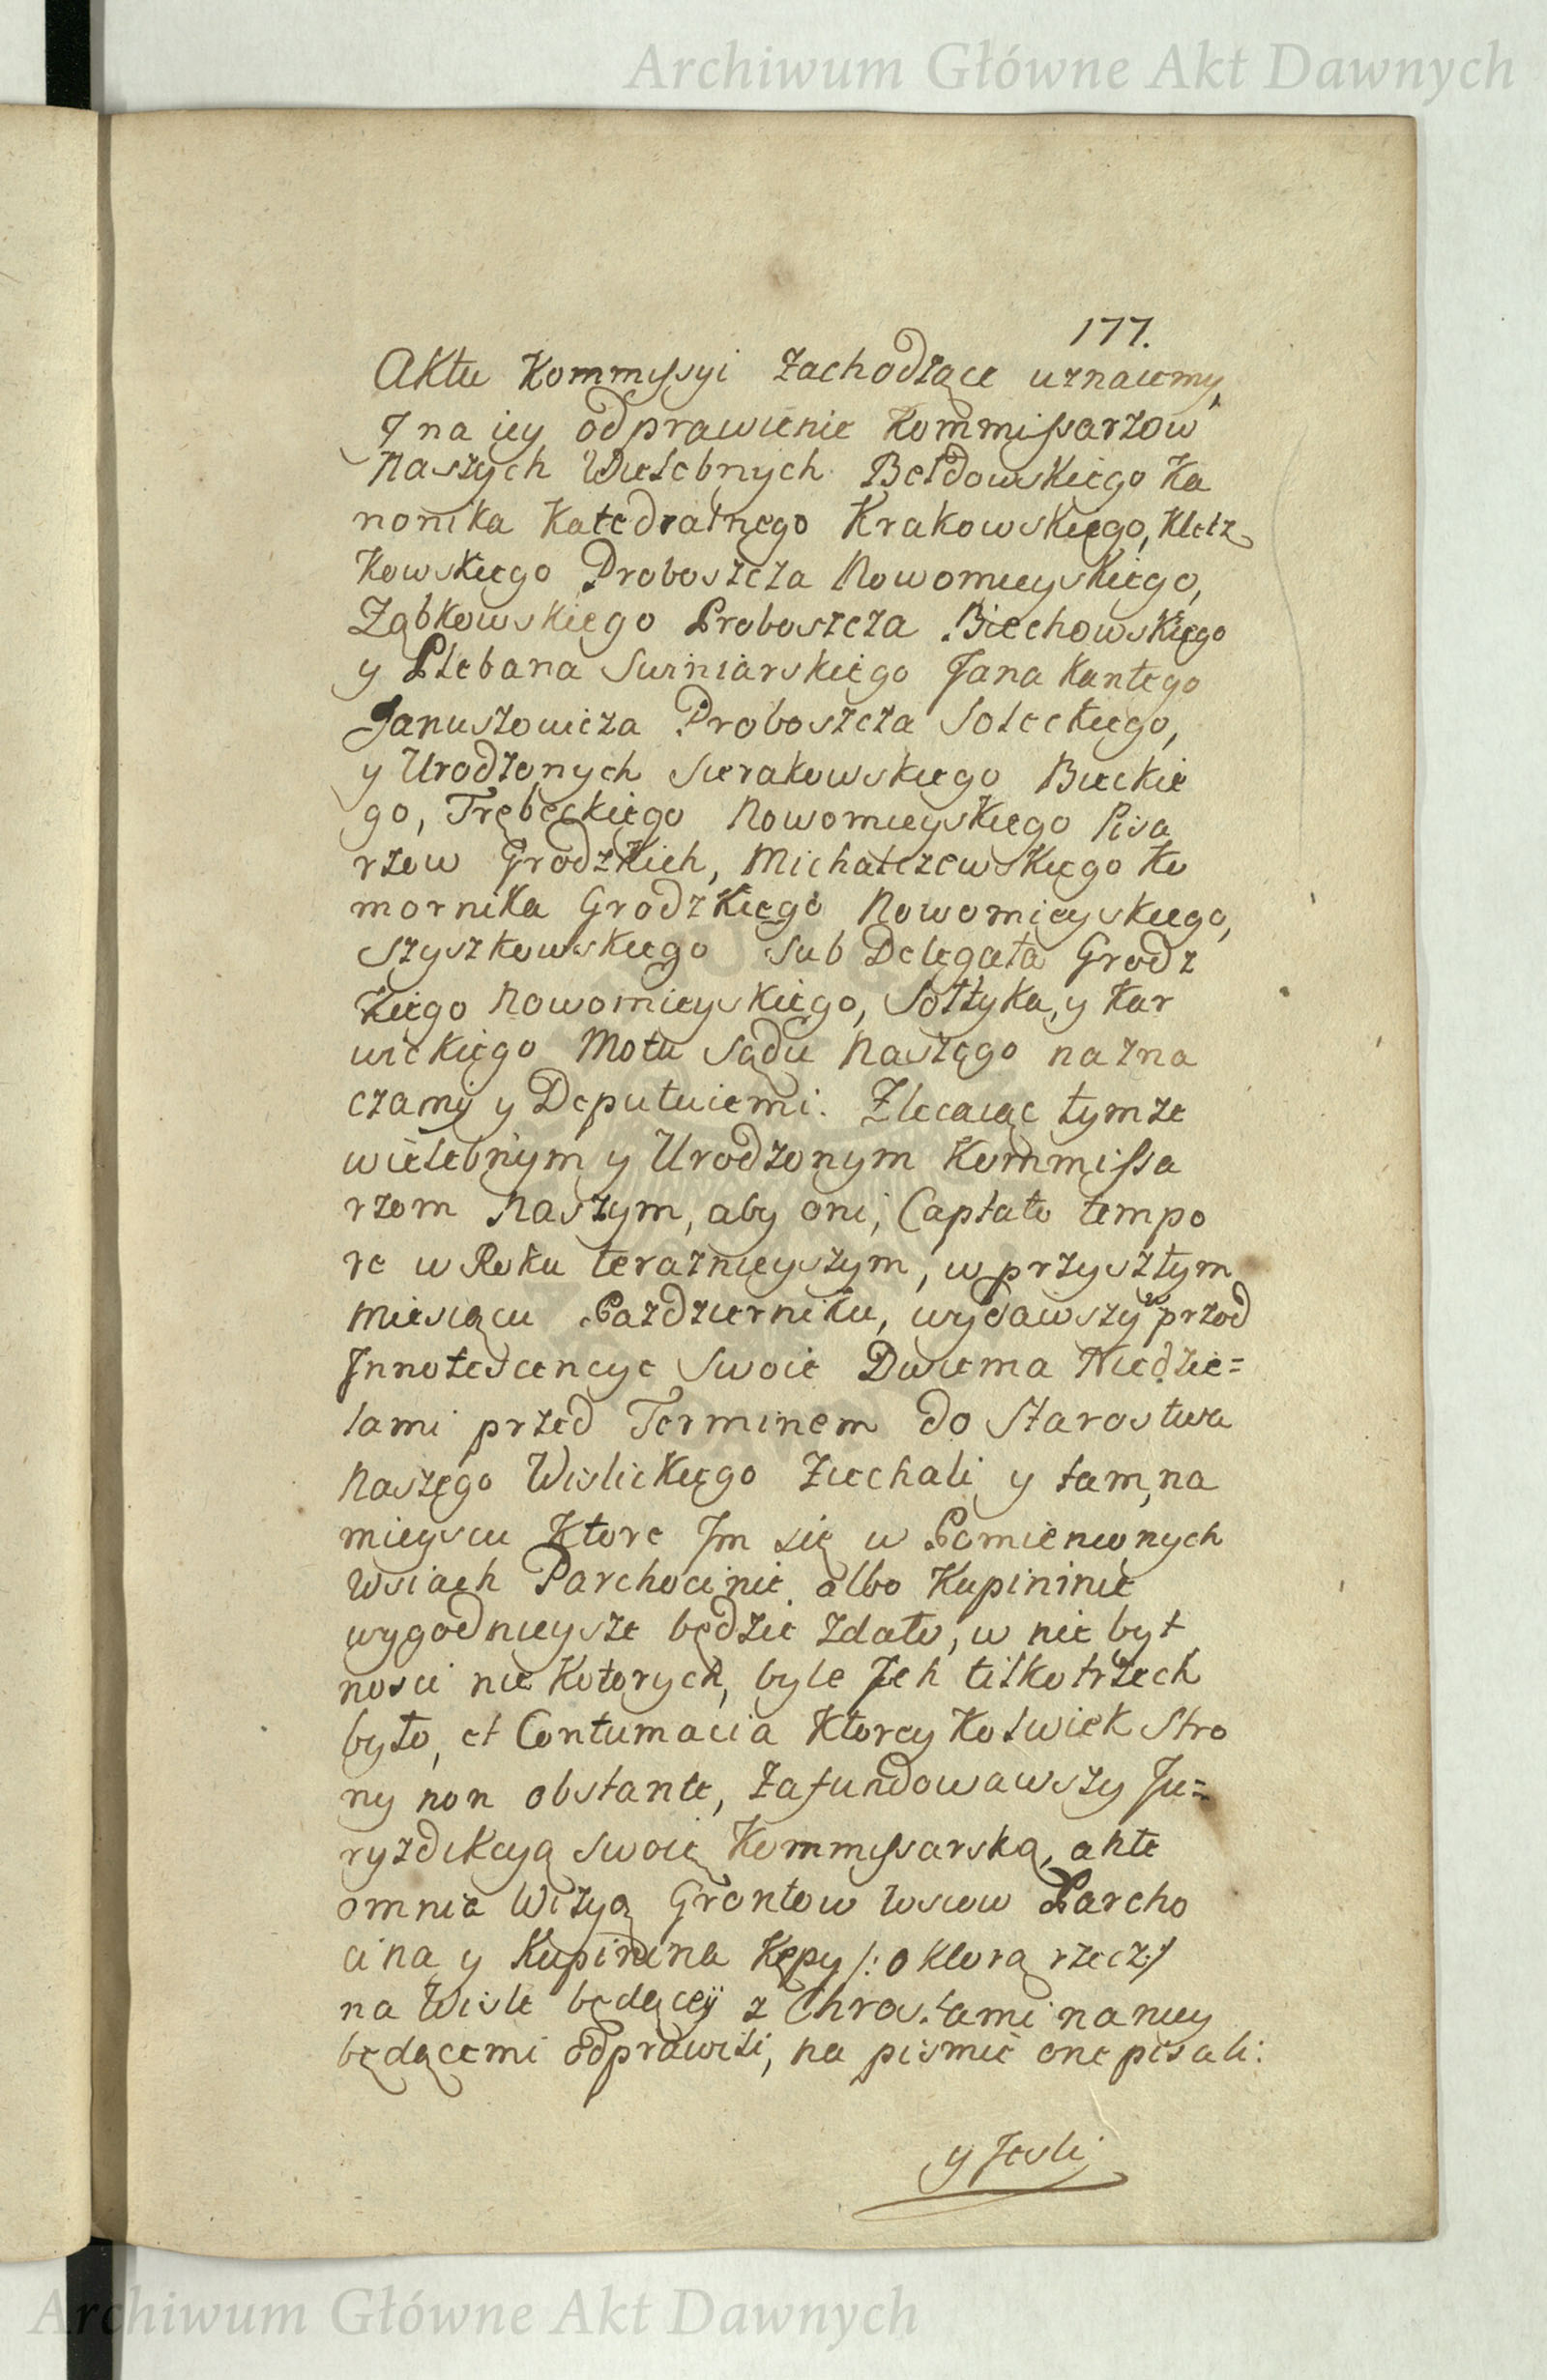 Archiwum Główne Akt Dawnych
177.
Aktu Kommissyi zachodzące uznaiemy,
I na iey odprawienie Kommissarzow
Naszych Wielebnych Bełdowskiego Ka
nonika Katedralnego Krakowskiego, Kletz
kowskiego Proboszcza Nowomieyskiego,
Ząbkowskiego Proboszcza Biechowskiego
y Plebana Swiniarskiego Jana Kantego
Januszowicza Proboszcza Soleckiego,
y Urodzonych Sierakowskiego Bieckie
go, Trębeckiego Nowomieyskiego Pisa
rzow Grodzkich, Michalczewskiego Ko
mornika Grodzkiego Nowomieyskiego,
Szyszkowskiego Sub Delegata Grodz
kiego Nowomieyskiego, Sołtyka, y Kar
wickiego Motu Sądu Naszego nazna
czamy y Deputuiemi. Zlecaiąc tymze
wielebnym y Urodzonym Kommissa
rzom Naszym, aby oni, Captato tempo
re w Roku teraznieyszym, w przyszłym
Miesiącu Pazdzierniku, wydawszy wprzod
Innotescencye Swoie Dwiema Niedzie=
lami przed Terminem do Starostwa
Naszego Wislickiego Ziechali y tam, na
mieyscu Ktore Im się w Pomienionych
Wsiach Parchocinie albo Kupininie
wygodnieysze będzie zdało, w nie był
nosci nie Kotorych, byle Ich tilko trzech
było, et Contumacia Ktorey Kolwiek Stro
ny non obstante, zafundowawszy Ju=
ryzdikcyą Swoię Kommissarską, ante
omnia Wizyą Grontow Wsiow Parcho
cina y Kupinina Kępy /: o Ktorą rzecz :/
na Wisle będącey z Chrostami na niey
będącemi odprawili, na pismie one pisali:
y Jesli
Archiwum Główne Akt Dawnych